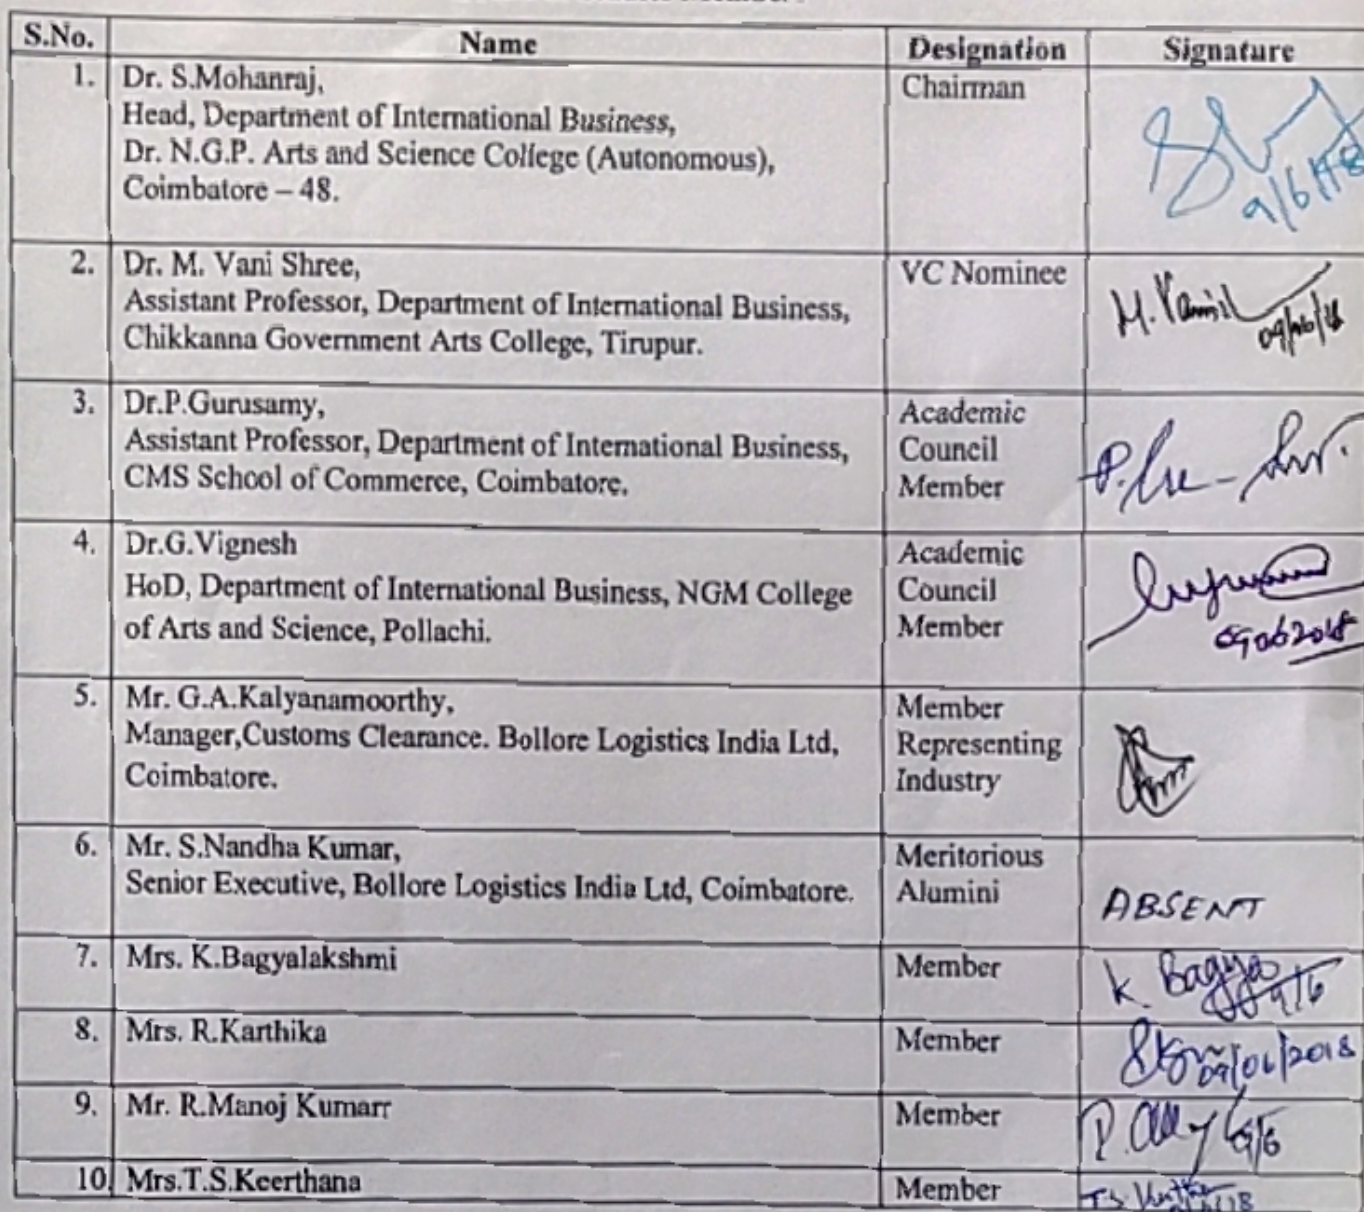 S.No. Name Designation Signature
1. Dr. S.Mohanraj, Chairman
Head, Department of International Business,
Dr. N.G.P. Arts and Science College (Autonomous),
Coimbatore – 48.
9/6/18
2. Dr. M. Vani Shree, VC Nominee
Assistant Professor, Department of International Business,
Chikkanna Government Arts College, Tirupur.
M.
09/06/18
3. Dr.P.Gurusamy, Academic
Assistant Professor, Department of International Business, Council
CMS School of Commerce, Coimbatore. Member
4. Dr.G.Vignesh Academic
HoD, Department of International Business, NGM College Council
of Arts and Science, Pollachi. Member
09062018
5. Mr. G.A.Kalyanamoorthy, Member
Manager,Customs Clearance. Bollore Logistics India Ltd, Representing
Coimbatore. Industry
6. Mr. S.Nandha Kumar, Meritorious
Senior Executive, Bollore Logistics India Ltd, Coimbatore. Alumini ABSENT
7. Mrs. K.Bagyalakshmi Member K. Bagya
9/6
8. Mrs. R.Karthika Member
09/06/2018
9. Mr. R.Manoj Kumarr Member
9/6
10. Mrs.T.S.Keerthana Member T.S.